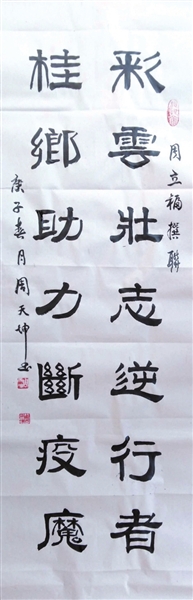 彩雲壯志逆行者
周立福撰聯
桂鄉助力斷疫魔
庚子春月周天坤书